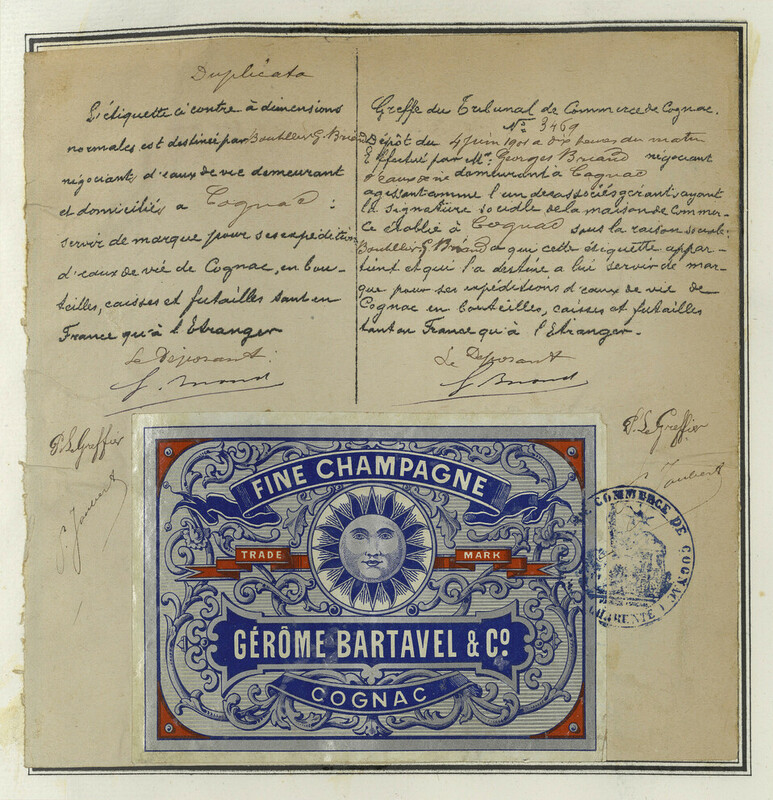 Duplicata
L'étiquette ci contre à dimensions
normales est destinée par Boutelleir G. Briand
négociants d'eaux de vie demeurant
et domiciliés à Cognac :
servir de marque pour ses expéditions
d'eaux de vie de Cognac, en bou-
teilles, caisses et futailles tant en
France qu'à l'Etranger
Le Déposant :
G. Briand
P. Le Greffier
Greffe du Tribunal de Commerce de Cognac.
No 3469
Dépôt du 4 Juin 1901 a dix heures du matin
Effectué par Mr. Georges Briand négociant
d'eaux de vie demeurant à Cognac
agissant comme l'un des associés gérants, ayant
la signature sociale de la maison de Commer-
ce établie à Cognac sous la raison sociale:
G. Briand a qui cette étiquette appar-
tient et qui l'a destine a lui servir de mar-
que pour ses expéditions d'eaux de vie de
Cognac en bouteilles, caisses et futailles
tant en France qu'à l'Etranger.
Le Déposant
G. Briand
P. Le Greffier
FINE CHAMPAGNE
TRADE MARK
GÉRÔME BARTAVEL & Co.
COGNAC
COMMERCE DE COGNAC
CHARENTE